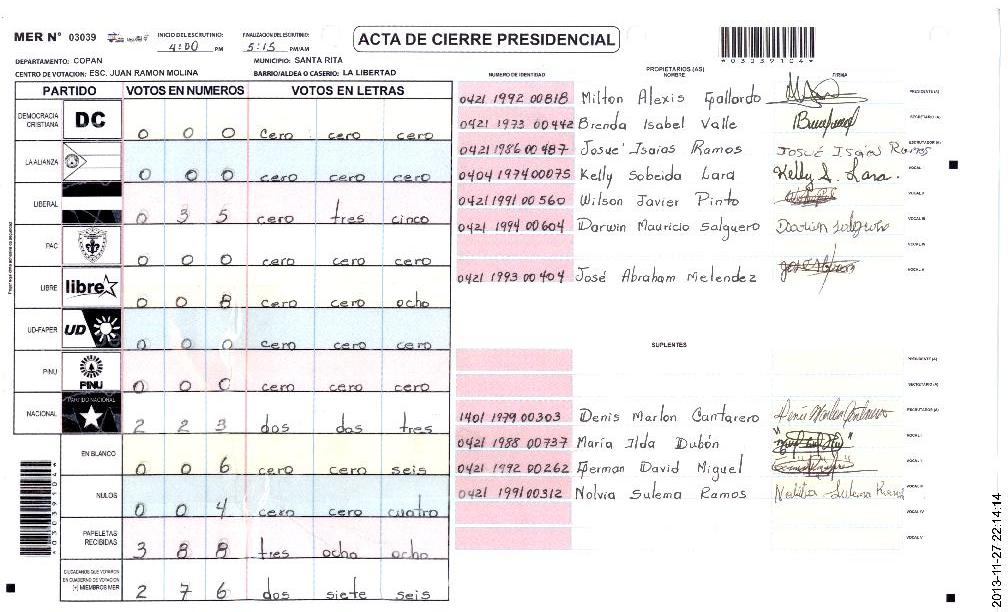 MER N° 03039
INICIO DEL ESCRUTINIO: 4:00 PM
FINALIZACION DEL ESCRUTINIO: 5:15 PM/AM
ACTA DE CIERRE PRESIDENCIAL
*03039104*
DEPARTAMENTO: COPAN
MUNICIPIO: SANTA RITA
CENTRO DE VOTACION: ESC. JUAN RAMON MOLINA
BARRIO/ALDEA O CASERIO: LA LIBERTAD
PARTIDO VOTOS EN NUMEROS VOTOS EN LETRAS
DEMOCRACIA CRISTIANA DC 0 0 0 cero cero cero
LA ALIANZA 0 0 0 cero cero cero
LIBERAL 0 3 5 cero tres cinco
PAC 0 0 0 cero cero cero
LIBRE libre 0 0 8 cero cero ocho
UD-FAPER UD 0 0 0 cero cero cero
PINU PINU 0 0 0 cero cero cero
NACIONAL PARTIDO NACIONAL 2 2 3 dos dos tres
EN BLANCO 0 0 6 cero cero seis
NULOS 0 0 4 cero cero cuatro
PAPELETAS RECIBIDAS 3 8 8 tres ocho ocho
CIUDADANOS QUE VOTARON EN CUADERNO DE VOTACION (+) MIEMBROS MER 2 7 6 dos siete seis
*03039104*
PROPIETARIOS (AS)
NUMERO DE IDENTIDAD NOMBRE FIRMA
0421 1992 00818 Milton Alexis Gallardo PRESIDENTE (A)
0421 1973 00442 Brenda Isabel Valle SECRETARIO (A)
0421 1986 00487 Josue Isaias Ramos JOSUÉ ISaías Ramos ESCRUTADOR (A)
0404 1974 00075 Kelly Sobeida Lara Kelly S. Lara. VOCAL I
0421 1991 00560 Wilson Javier Pinto VOCAL II
0421 1994 00604 Darwin Mauricio Salguero Darwin Salguero VOCAL III
VOCAL IV
0421 1993 00404 José Abraham Melendez VOCAL V
SUPLENTES
PRESIDENTE (A)
SECRETARIO (A)
1401 1979 00303 Denis Marlon Cantarero Denis Marlon Cantarero ESCRUTADOR (A)
0421 1988 00737 María Ilda Dubón VOCAL I
0421 1992 00262 German David Miguel VOCAL II
0421 1991 00312 Nolvia Sulema Ramos VOCAL III
VOCAL IV
VOCAL V
2013-11-27 22:14:14